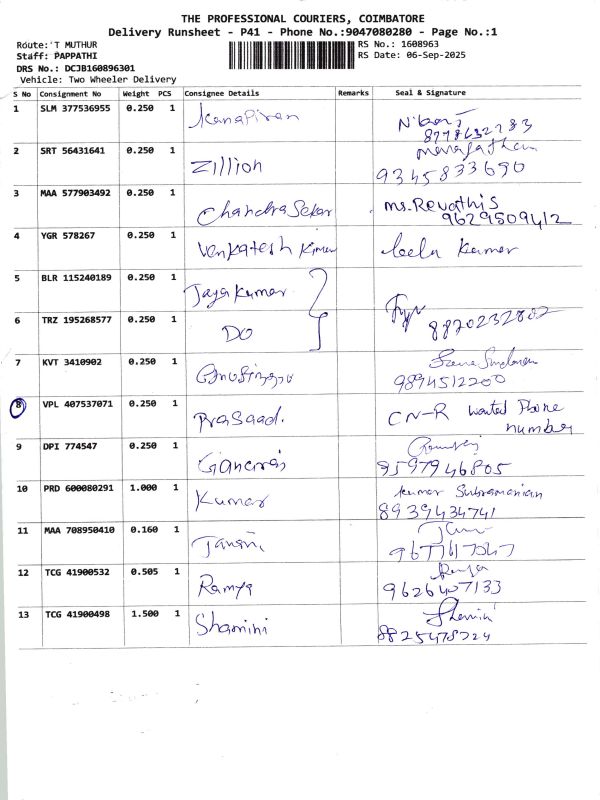 THE PROFESSIONAL COURIERS, COIMBATORE
Delivery Runsheet - P41 - Phone No.:9047080280 - Page No.:1
Route: T MUTHUR
RS No.: 1608963
Staff: PAPPATHI
RS Date: 06-Sep-2025
DRS No.: DCJB160896301
Vehicle: Two Wheeler Delivery
S No Consignment No Weight PCS Consignee Details Remarks Seal & Signature
1 SLM 377536955 0.250 1
2 SRT 56431641 0.250 1 Zillion
9345833690
3 MAA 577903492 0.250 1 Chandra Sekar Ms. Revathis
9629509412
4 YGR 578267 0.250 1 Venkatesh Kumar leela kumar
5 BLR 115240189 0.250 1 Jayakumar
6 TRZ 195268577 0.250 1 DO 8870232802
7 KVT 3410902 0.250 1
9894512200
8 VPL 407537071 0.250 1 Prasaad. CN-R wanted Phone
number
9 DPI 774547 0.250 1
9597946805
10 PRD 600080291 1.000 1 Kumar Kumar Subramanian
8939434741
11 MAA 708950410 0.160 1 Janani
12 TCG 41900532 0.505 1 Ramya Ramya
9626407133
13 TCG 41900498 1.500 1 Shamini Shamini